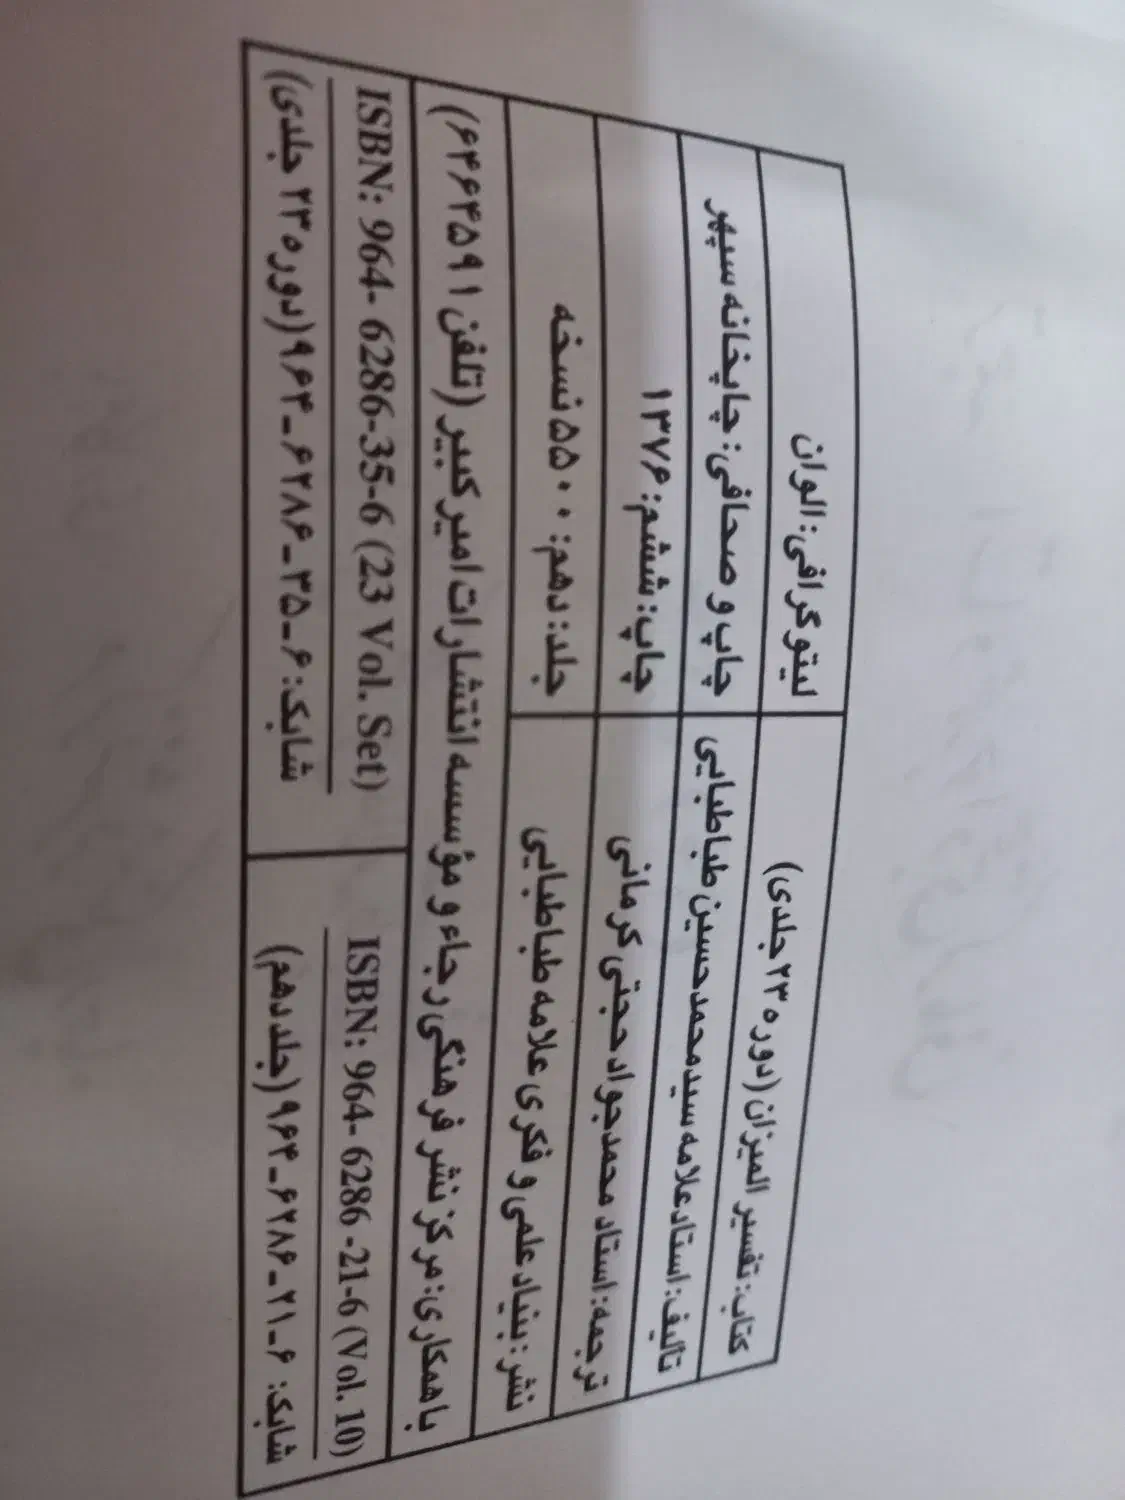 کتاب: تفسیر المیزان (دوره ۲۳ جلدی)
لیتوگرافی: الوان
تالیف: استاد علامه سید محمد حسین طباطبایی
چاپ و صحافی: چاپخانه سپهر
ترجمه: استاد محمد جواد حجتی کرمانی
چاپ: ششم: ۱۳۷۶
نشر: بنیاد علمی و فکری علامه طباطبایی
جلد: دهم: ۵۵۰۰ نسخه
با همکاری: مرکز نشر فرهنگی رجاء و مؤسسه انتشارات امیر کبیر (تلفن ۶۴۶۴۵۹۱)
ISBN: 964- 6286-35-6 (23 Vol. Set)
شابک: ۶-۳۵-۶۲۸۶-۹۶۴ (دوره ۲۳ جلدی)
ISBN: 964- 6286 -21-6 (Vol. 10)
شابک: ۶-۲۱-۶۲۸۶-۹۶۴ (جلد دهم)